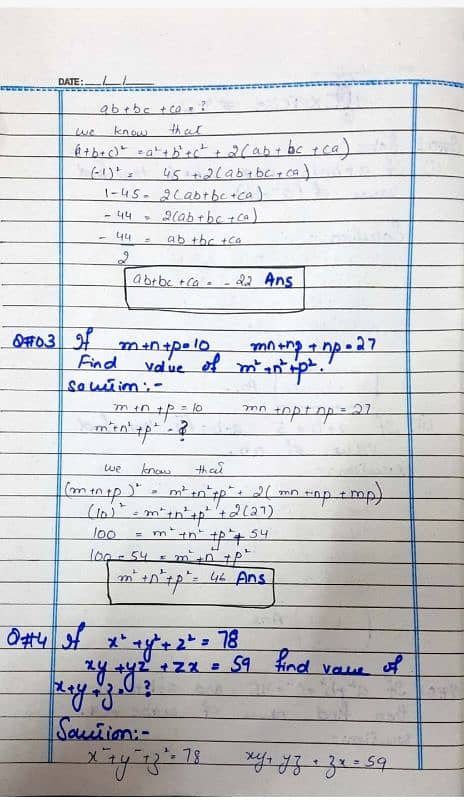 DATE: __/__/__
ab + bc + ca = ?
we know that
(a+b+c)² = a² + b² + c² + 2(ab + bc + ca)
(-1)² = 45 + 2(ab + bc + ca)
1-45 = 2(ab+bc+ca)
- 44 = 2(ab+bc+ca)
- 44/2 = ab + bc + ca
ab+bc+ca = - 22 Ans
Q#03 If m+n+p=10 mn+np+np=27
Find value of m²+n²+p².
Solution:-
m+n+p = 10 mn+np+np = 27
m²+n²+p² = ?
we know that
(m+n+p)² = m²+n²+p² + 2(mn+np+mp)
(10)² = m²+n²+p² + 2(27)
100 = m²+n²+p² + 54
100-54 = m²+n²+p²
m²+n²+p² = 46 Ans
Q#4 If x²+y²+z² = 78
xy+yz+zx = 59 find value of
x+y+z = ?
Solution:-
x²+y²+z² = 78 xy+yz+zx = 59